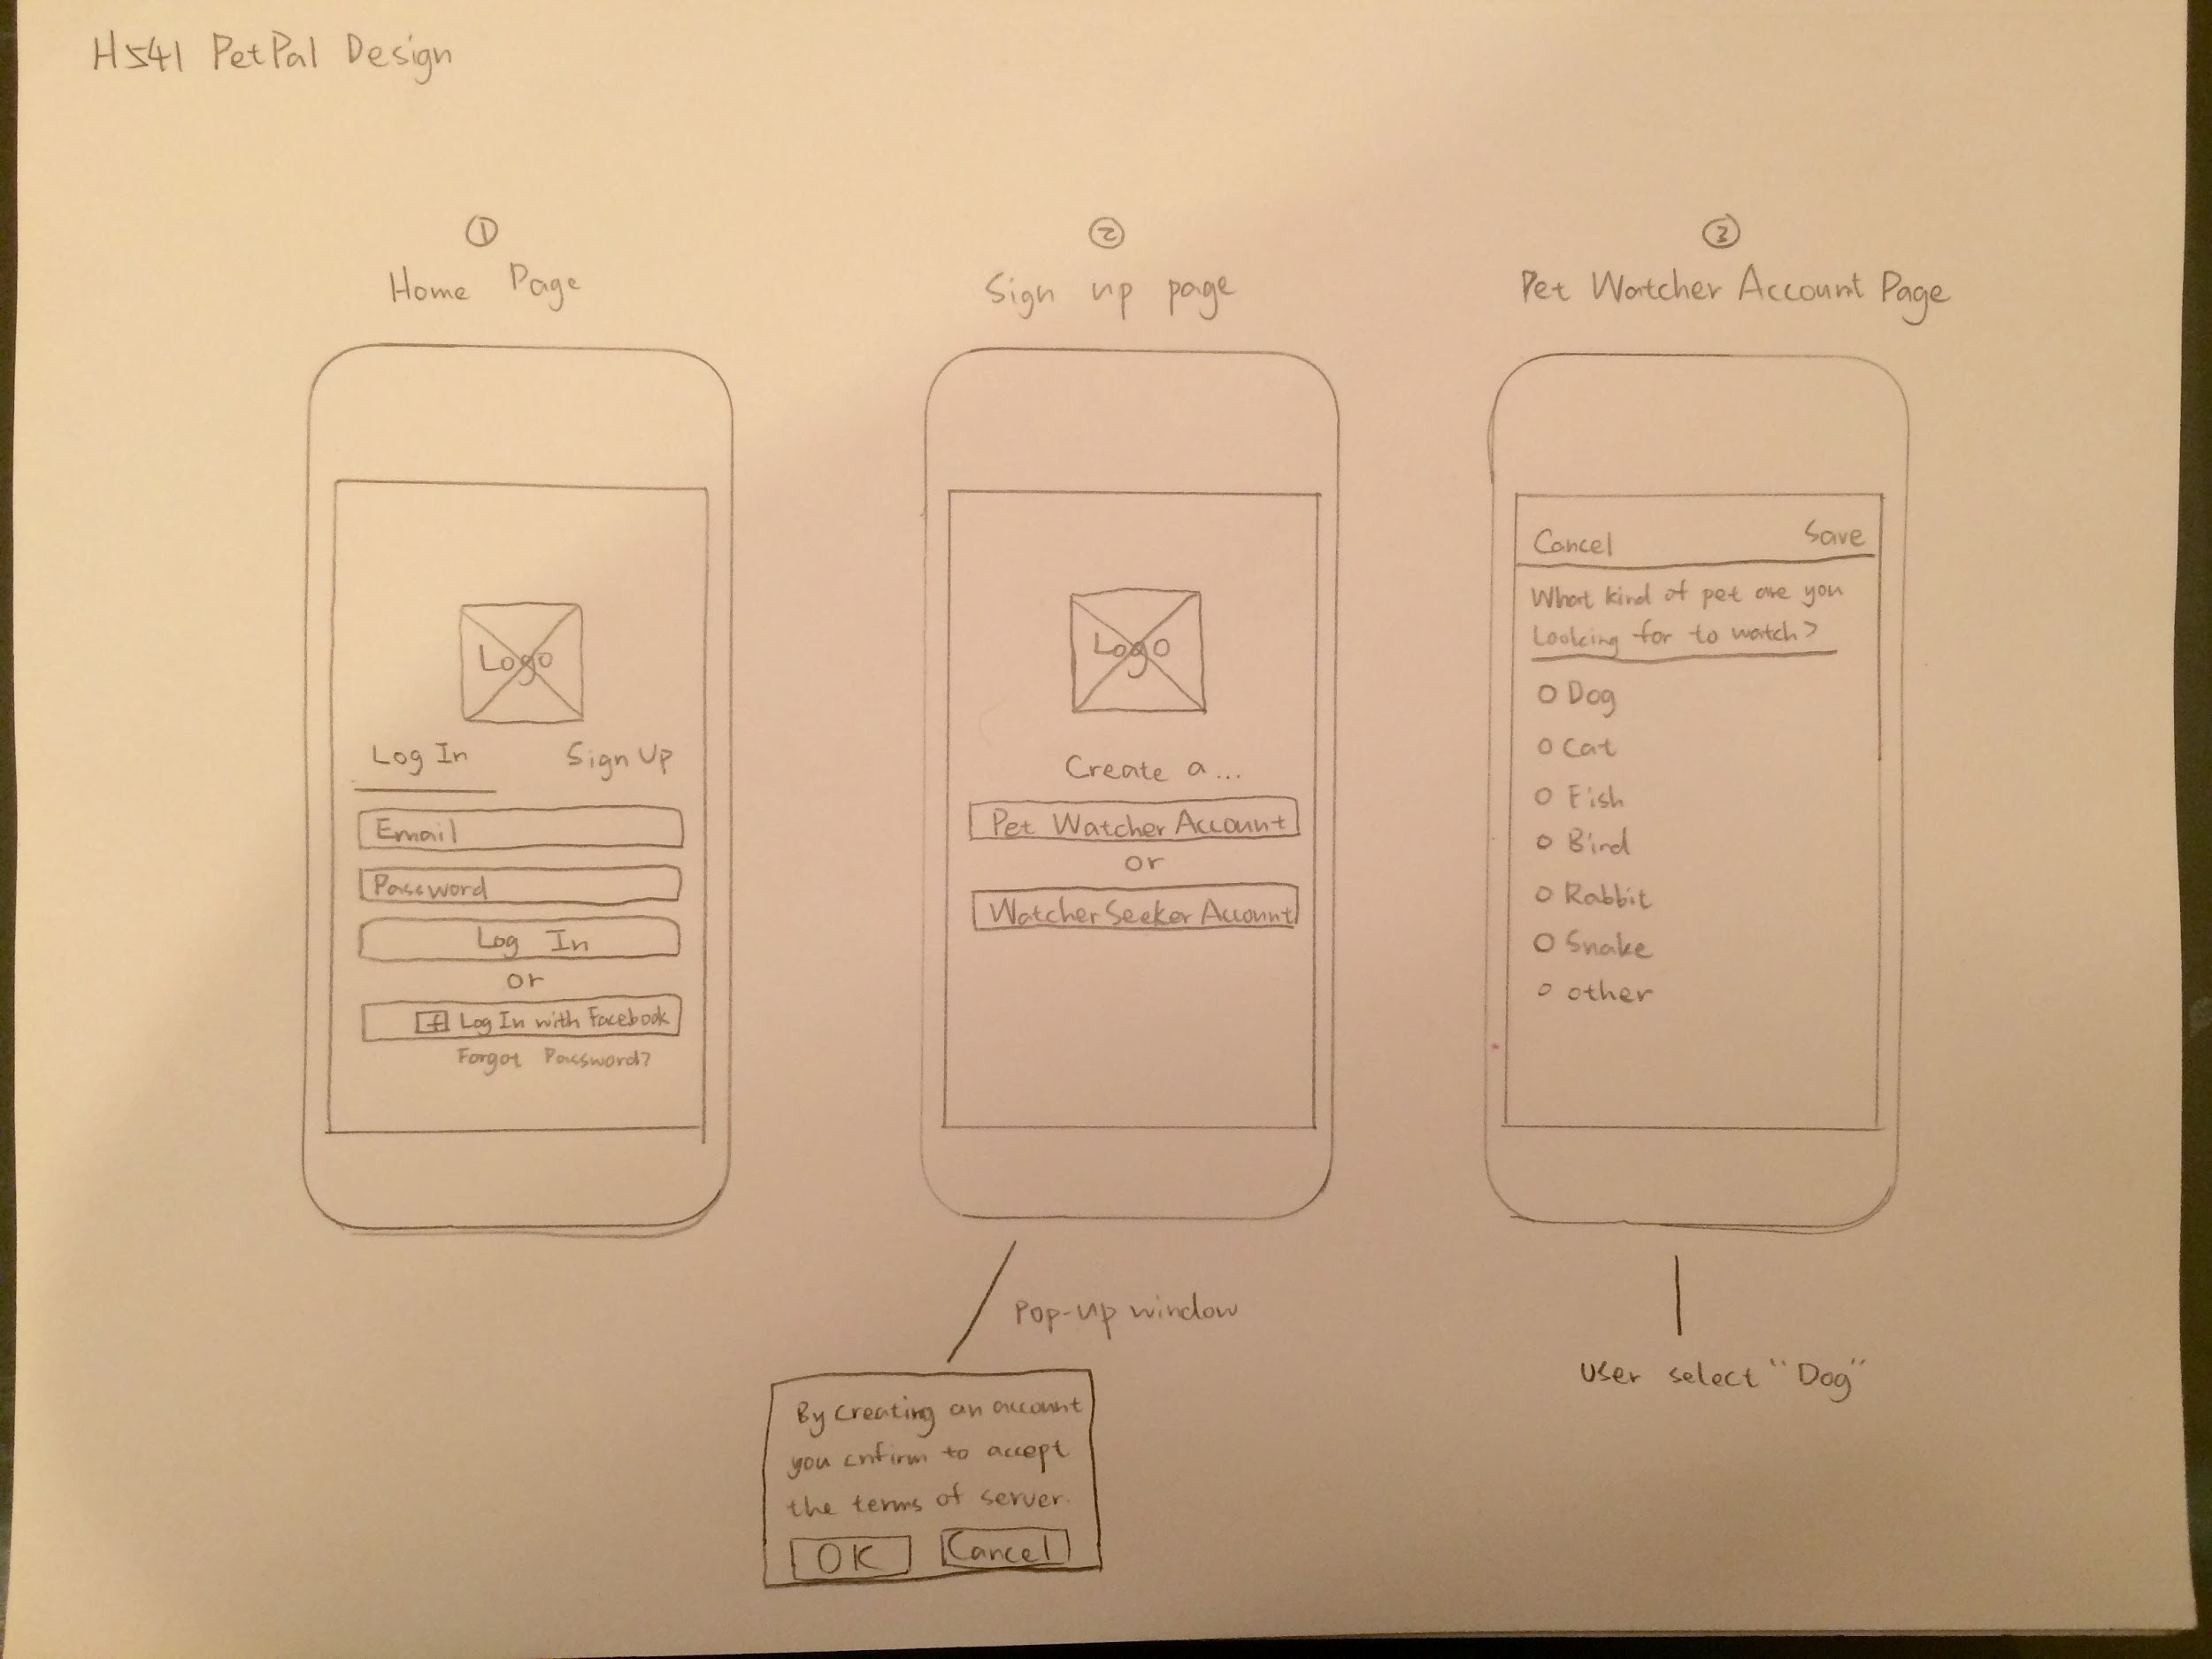 H541 PetPal Design
①
Home Page
Logo
Log In Sign Up
Email
Password
Log In
or
f Log In with Facebook
Forgot Password?
②
Sign up page
Logo
Create a...
Pet Watcher Account
or
Watcher Seeker Account
Pop-up window
By creating an account
you cnfirm to accept
the terms of server.
OK Cancel
③
Pet Watcher Account Page
Cancel Save
What kind of pet are you
Looking for to watch?
Dog
Cat
Fish
Bird
Rabbit
Snake
other
User select "Dog"